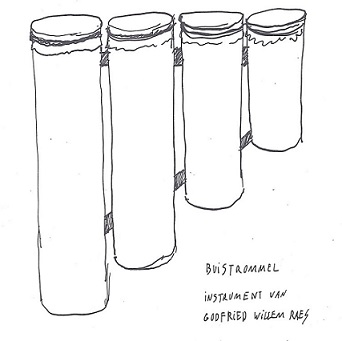 BUISTROMMEL
INSTRUMENT VAN
GODFRIED WILLEM RAES